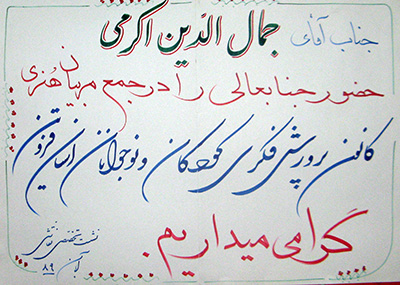 جناب آقای جمال الدین اکرمی
حضور جنابعالی را در جمع مربیان هنری
کانون پرورش فکری کودکان و نوجوانان استان قزوین
گرامی میداریم.
نشست تخصصی نقاشی
آبان ۸۹